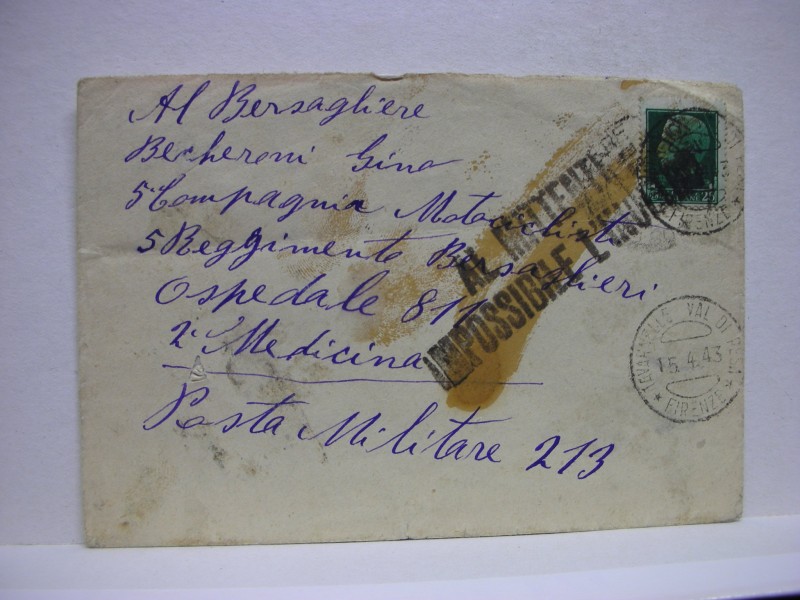 Al Bersagliere
Becheroni Gino
5ª Compagnia Motociclisti
5 Reggimento Bersaglieri
Ospedale 811
2ª Medicina
Posta Militare 213
AL MITTENTE
IMPOSSIBILE
VAL DI
15.4.43
* FIRENZE *
FIRENZE